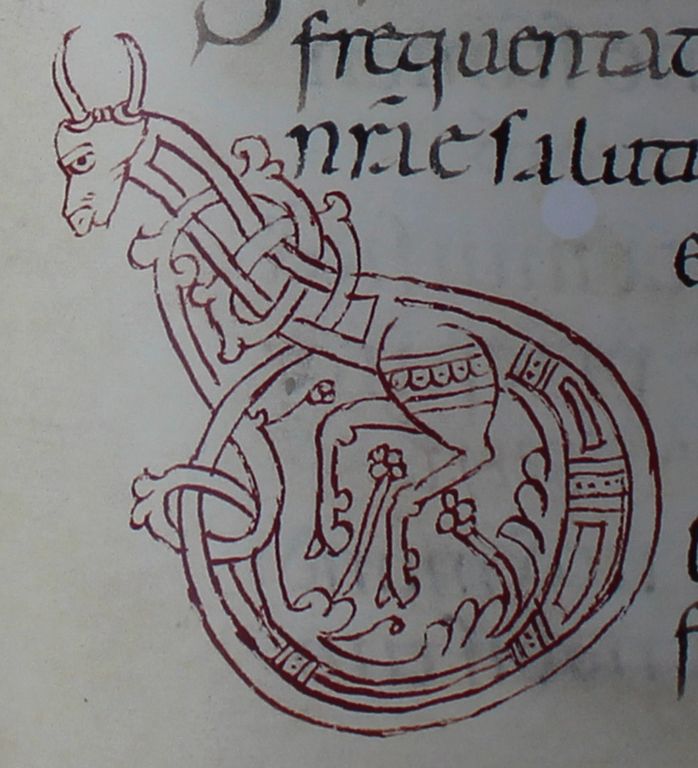 frequentat
nr̄ae salutu
e
f